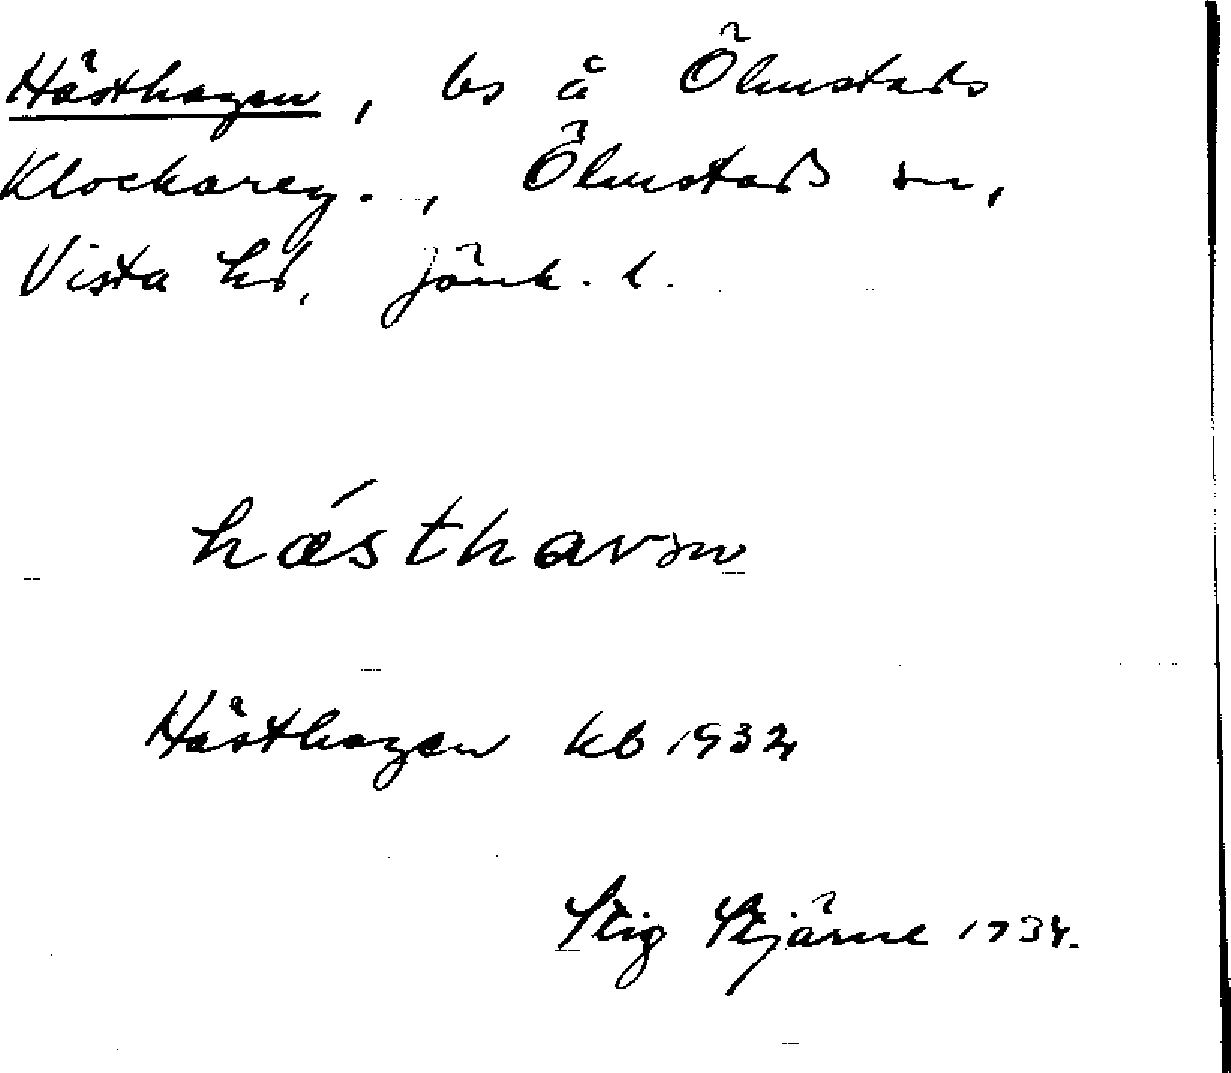 Hästhagen, bs å Ölmstads
Klockareg., Ölmstads sn,
Vista hd. Jönk. l.
hästhavən
Hästhagen kb 1932
Stig Stjärne 1934.